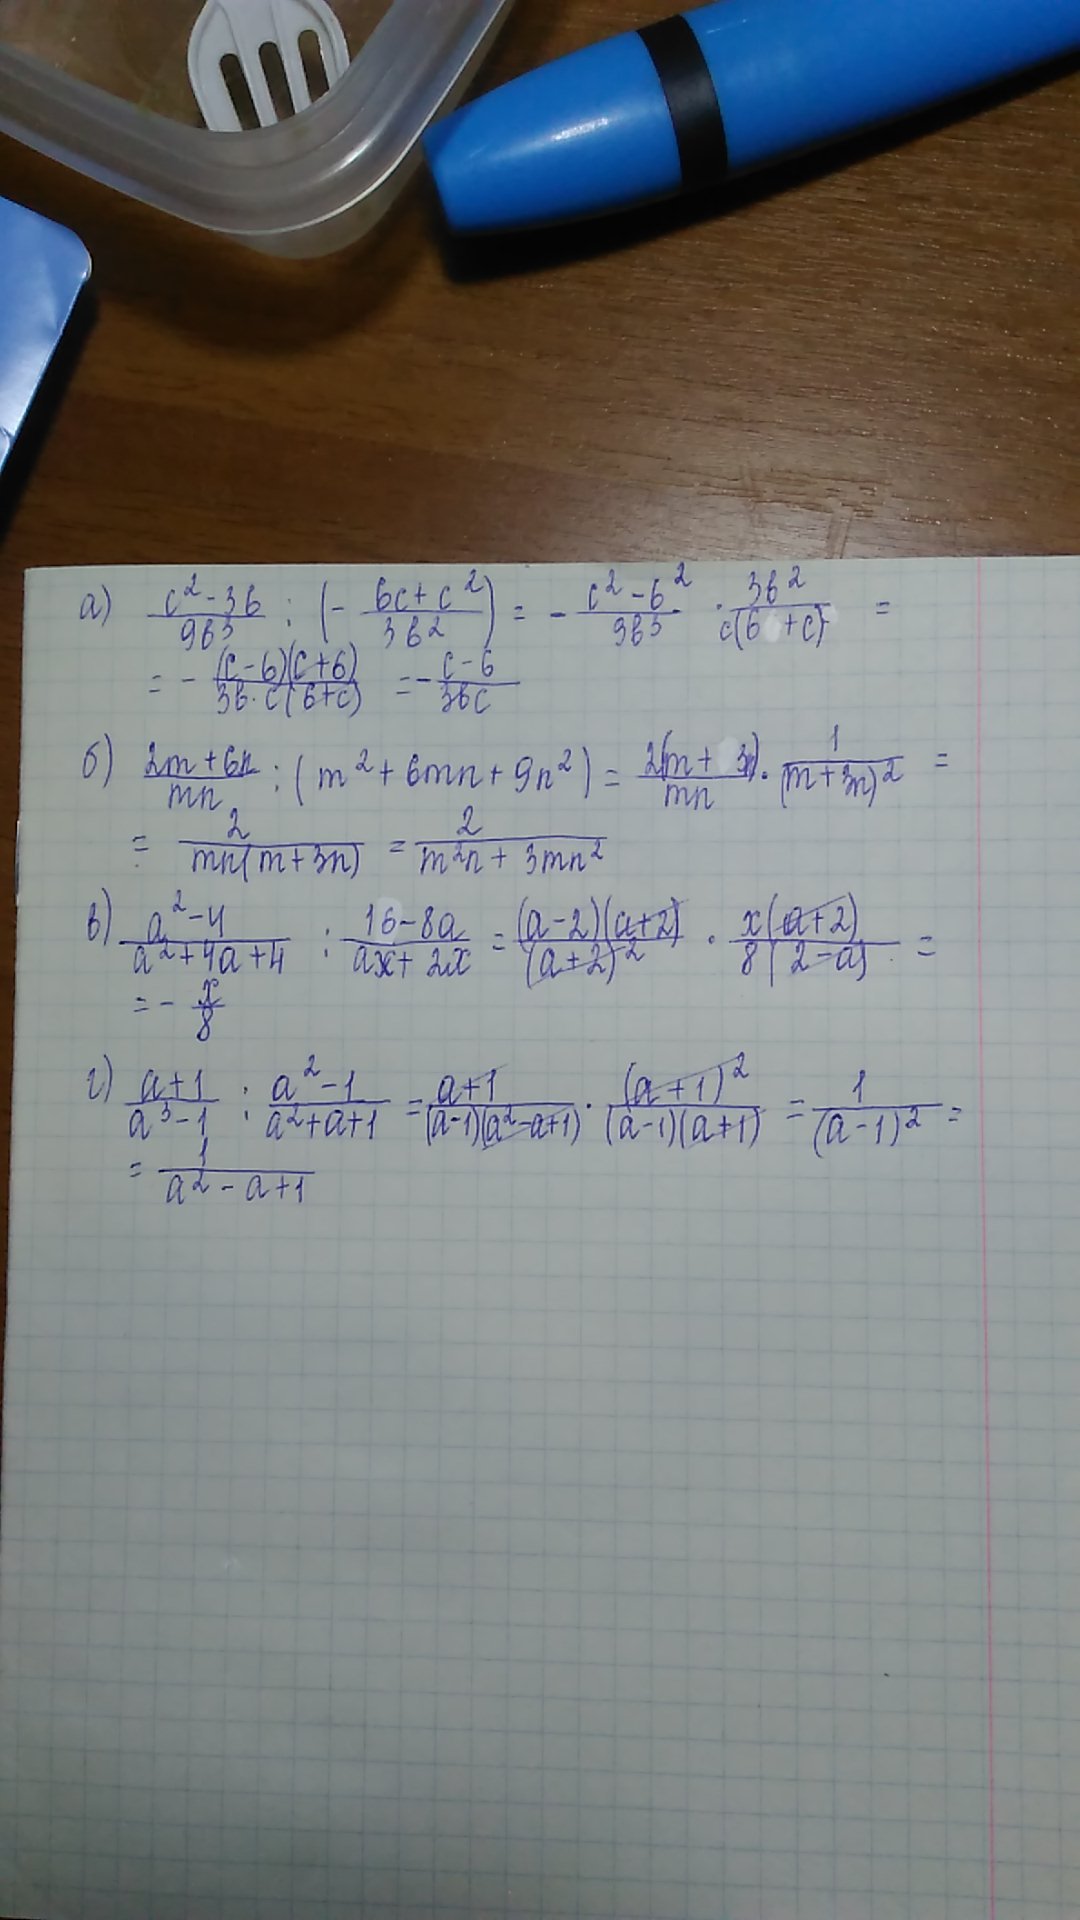 а) (c² - 36)/(9b³) : (- (6c + c²)/(3b²)) = - (c² - 6²)/(9b³) · (3b²)/(c(6 + c)) =
= - ((c - 6)(c + 6))/(3b · c(6 + c)) = - (c - 6)/(3bc)
б) (2m + 6n)/(mn) : (m² + 6mn + 9n²) = (2(m + 3n))/(mn) · 1/((m + 3n)²) =
= 2/(mn(m + 3n)) = 2/(m²n + 3mn²)
в) (a² - 4)/(a² + 4a + 4) : (16 - 8a)/(ax + 2x) = ((a - 2)(a + 2))/((a + 2)²) · (x(a + 2))/(8(2 - a)) =
= - x/8
г) (a + 1)/(a³ - 1) : (a² - 1)/(a² + a + 1) = (a + 1)/((a - 1)(a² - a + 1)) · ((a + 1)²)/((a - 1)(a + 1)) = 1/((a - 1)²) =
= 1/(a² - a + 1)